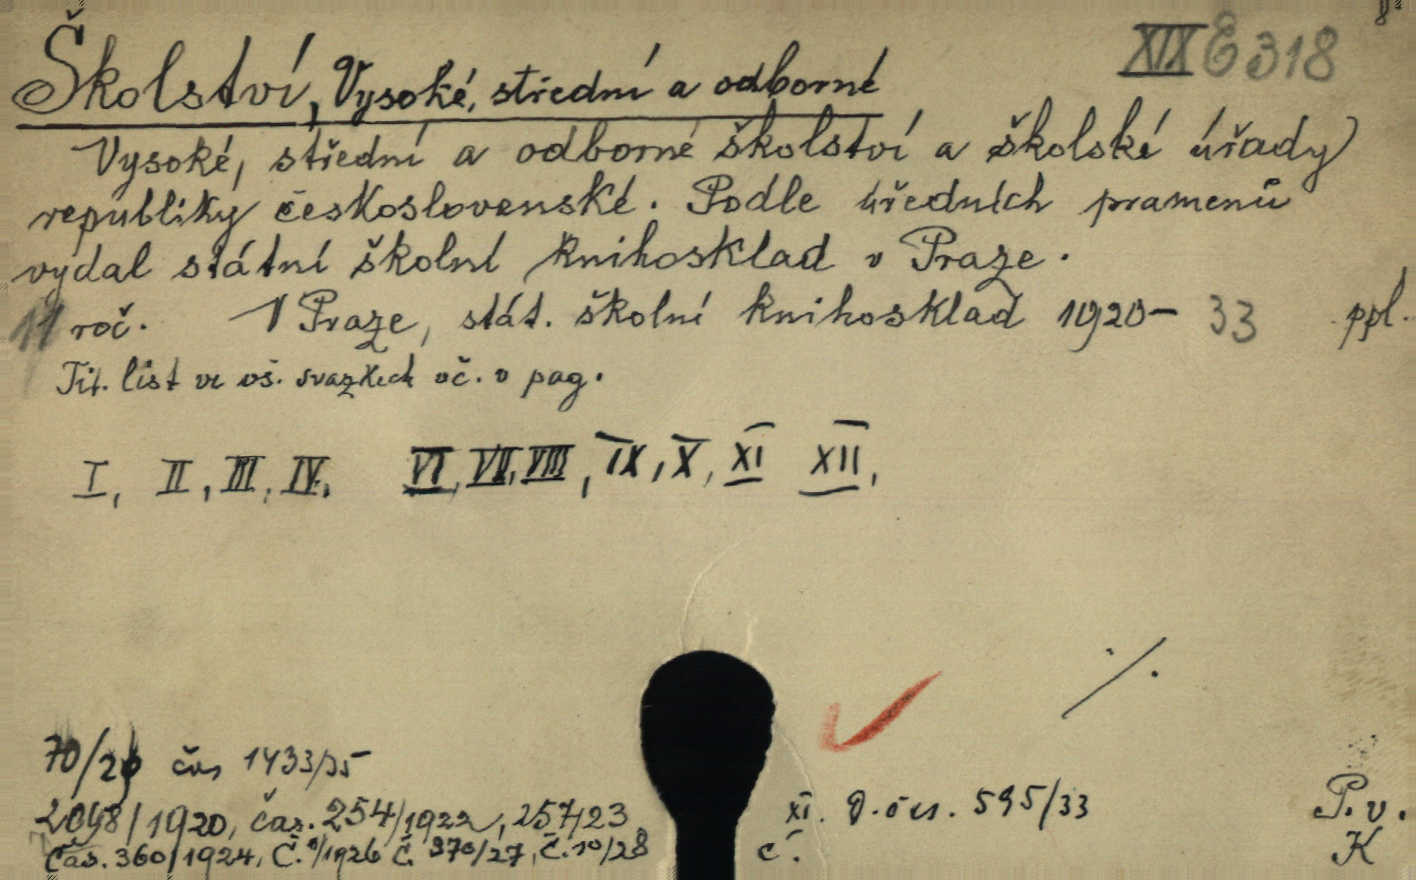 XIX E 318
Školství, Vysoké, střední a odborné
Vysoké, střední a odborné školství a školské úřady
republiky československé. Podle úředních pramenů
vydal státní školní knihosklad v Praze.
11 roč. V Praze, stát. školní knihosklad 1920-33 ppl.
Tit. list ve vš. svazkech vč. v pag.
I, II, III, IV, VI, VII, VIII, IX, X, XI XII,
70/26 čas 1433/35
2098/1920, čas. 254/1922, 257/23
XI. D. čís. 595/33
P. v.
Čas. 360/1924, Č. /1926 Č. 370/27, Č. 10/28
č.
K